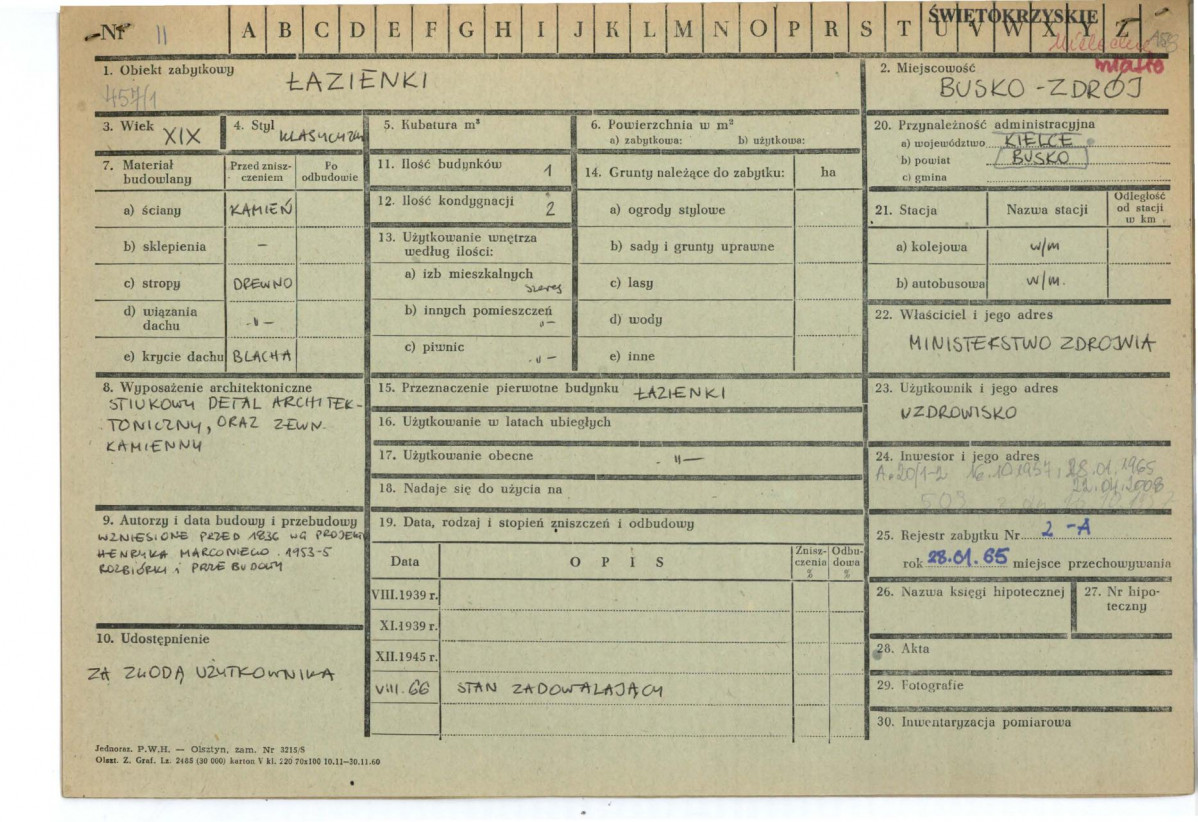 Nr 11 A B C D E F G H I J K L M N O P R S T U V W X Y Z
ŚWIĘTOKRZYSKIE
miasto
1. Obiekt zabytkowy
ŁAZIENKI
457/1
2. Miejscowość
BUSKO-ZDRÓJ
3. Wiek XIX
4. Styl KLASYCYZM
5. Kubatura m³
6. Powierzchnia w m²
a) zabytkowa: b) użytkowa:
20. Przynależność administracyjna
a) województwo KIELCE
b) powiat BUSKO
c) gmina
7. Materiał budowlany
Przed zniszczeniem
Po odbudowie
a) ściany KAMIEŃ
b) sklepienia —
c) stropy DREWNO
d) wiązania dachu -"-
e) krycie dachu BLACHA
11. Ilość budynków 1
12. Ilość kondygnacji 2
13. Użytkowanie wnętrza według ilości:
a) izb mieszkalnych
szereg
b) innych pomieszczeń
"-
c) piwnic -"-
14. Grunty należące do zabytku: ha
a) ogrody stylowe
b) sady i grunty uprawne
c) lasy
d) wody
e) inne
21. Stacja Nazwa stacji Odległość od stacji w km
a) kolejowa w/m
b) autobusowa w/m.
22. Właściciel i jego adres
MINISTERSTWO ZDROJWIA
8. Wyposażenie architektoniczne
STIUKOWY DETAL ARCHITEK-
TONICZNY, ORAZ ZEWN.
KAMIENNY
15. Przeznaczenie pierwotne budynku ŁAZIENKI
16. Użytkowanie w latach ubiegłych
17. Użytkowanie obecne -"-
18. Nadaje się do użycia na
23. Użytkownik i jego adres
UZDROWISKO
24. Inwestor i jego adres
A.20/1-2 16.10.1957, 28.01.1965
22.04.2008
9. Autorzy i data budowy i przebudowy
WZNIESIONE PRZED 1836 WG PROJEKT
HENRYKA MARCONIEGO. 1953-5
ROZBIÓRKI i PRZEBUDOWY
10. Udostępnienie
ZA ZGODĄ UŻYTKOWNIKA
19. Data, rodzaj i stopień zniszczeń i odbudowy
Data OPIS Zniszczenia % Odbudowa %
VIII.1939 r.
XI.1939 r.
XII.1945 r.
VIII.66 STAN ZADOWALAJĄCY
25. Rejestr zabytku Nr 2-A
rok 28.01.65 miejsce przechowywania
26. Nazwa księgi hipotecznej
27. Nr hipoteczny
28. Akta
29. Fotografie
30. Inwentaryzacja pomiarowa
Jednoraz. P.W.H. — Olsztyn, zam. Nr 3215/S
Olszt. Z. Graf. Lz. 2485 (30 000) karton V kl. 220 70x100 10.11—30.11.60